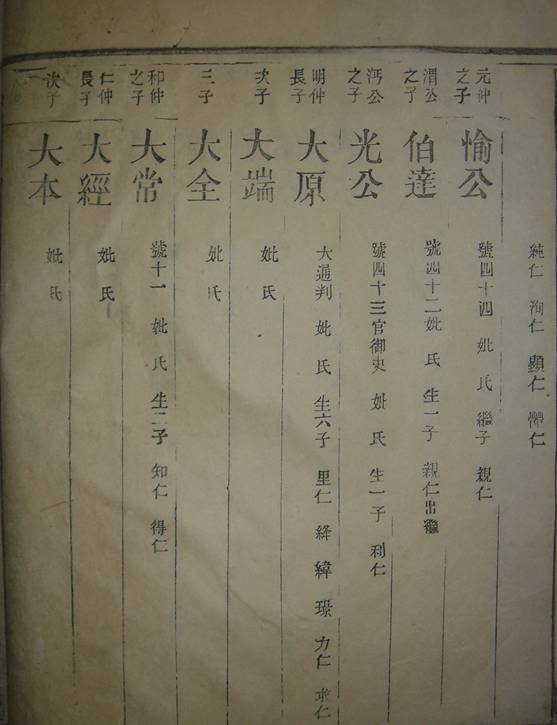 純仁 洵仁 顯仁 懷仁
元仲之子
愉公
號四十四 妣 氏 繼子 親仁
渭公之子
伯達
號四十二 妣 氏 生一子 親仁出繼
沔公之子
光公
號四十三官御史 妣 氏 生一子 利仁
明仲長子
大原
大通判 妣 氏 生六子 里仁 絳 緯 璟 力仁 求仁
次子
大端
妣 氏
三子
大全
妣 氏
和仲之子
大常
號十一 妣 氏 生二子 知仁 得仁
仁仲長子
大經
妣 氏
次子
大本
妣 氏